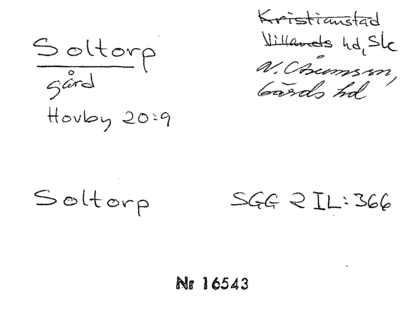 Soltorp
gård
Hovby 20:9
Kristianstad
Villands hd, Sk
N. Åsum sn,
Gärds hd
Soltorp
SGG 2 IL:366
Nr 16543